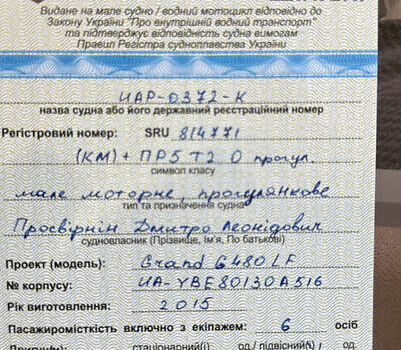 Видане на мале судно / водний мотоцикл відповідно до
Закону України "Про внутрішній водний транспорт"
та підтверджує відповідність судна вимогам
Правил Регістра судноплавства України
ИАР-0372-К
назва судна або його державний реєстраційний номер
Регістровий номер: SRU 814771
(КМ) + ПР5 Т2 0 прогул.
символ класу
мале моторне, прогулянкове
тип та призначення судна
Просвірнін Дмитро Леонідович
судновласник (Прізвище, Ім'я, По батькові)
Проект (модель): Grand G480LF
№ корпусу: UA-YBE80130A516
Рік виготовлення: 2015
Пасажиромісткість включно з екіпажем: 6 осіб
стаціонарний(і) од./ підвісний(і) 1 од.